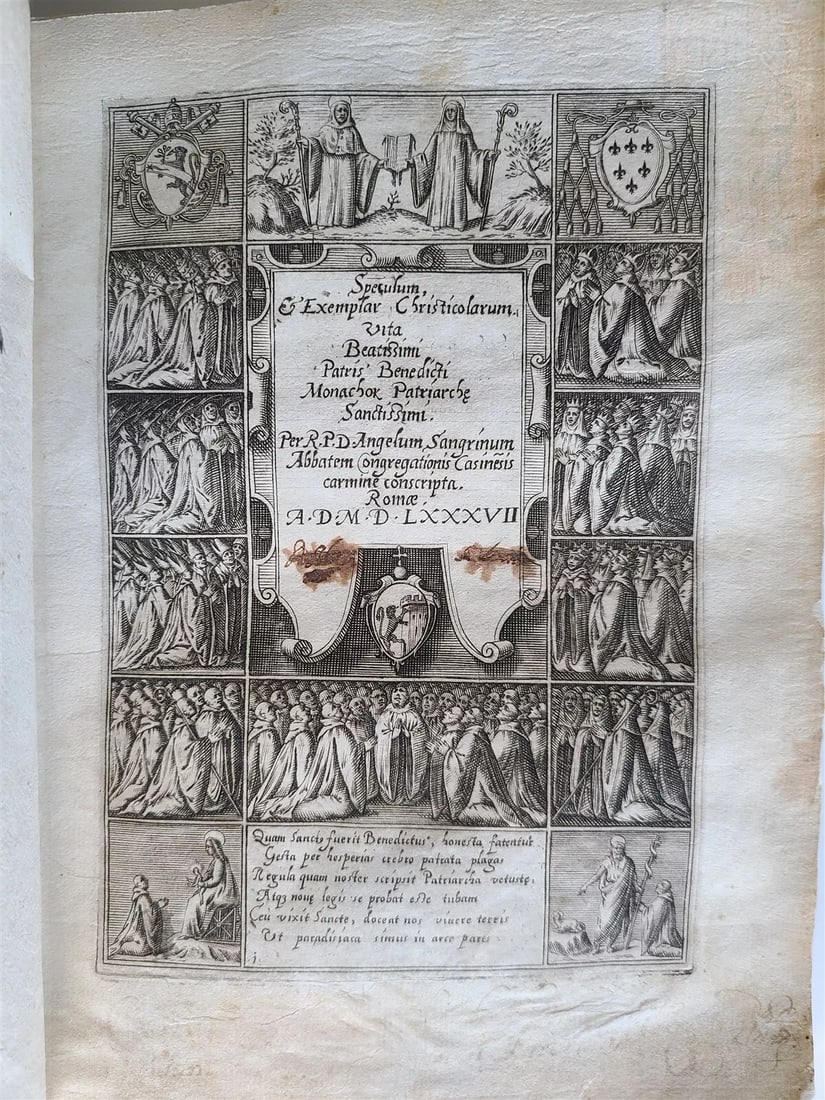 Speculum,
& Exemplar Christicolarum.
Vita
Beatissimi
Patris Benedicti
Monachoꝝ Patriarchę
Sanctissimi.
Per R.P.D. Angelum Sangrinum
Abbatem Congregationis Casinēsis
carmine conscripta.
Romæ.
A·D·M·D·LXXXVII
Quam Sanctꝰ fuerit Benedictus, honesta fatentur
Gesta per hesperias crebro patrata plagas
Regula quam noster scripsit Patriarcha vetustę,
Atqꝫ nouę legis se probat esse tubam
Ceu vixit Sancte, doceat nos viuere terris
Vt paradisiaca simus in arce pares